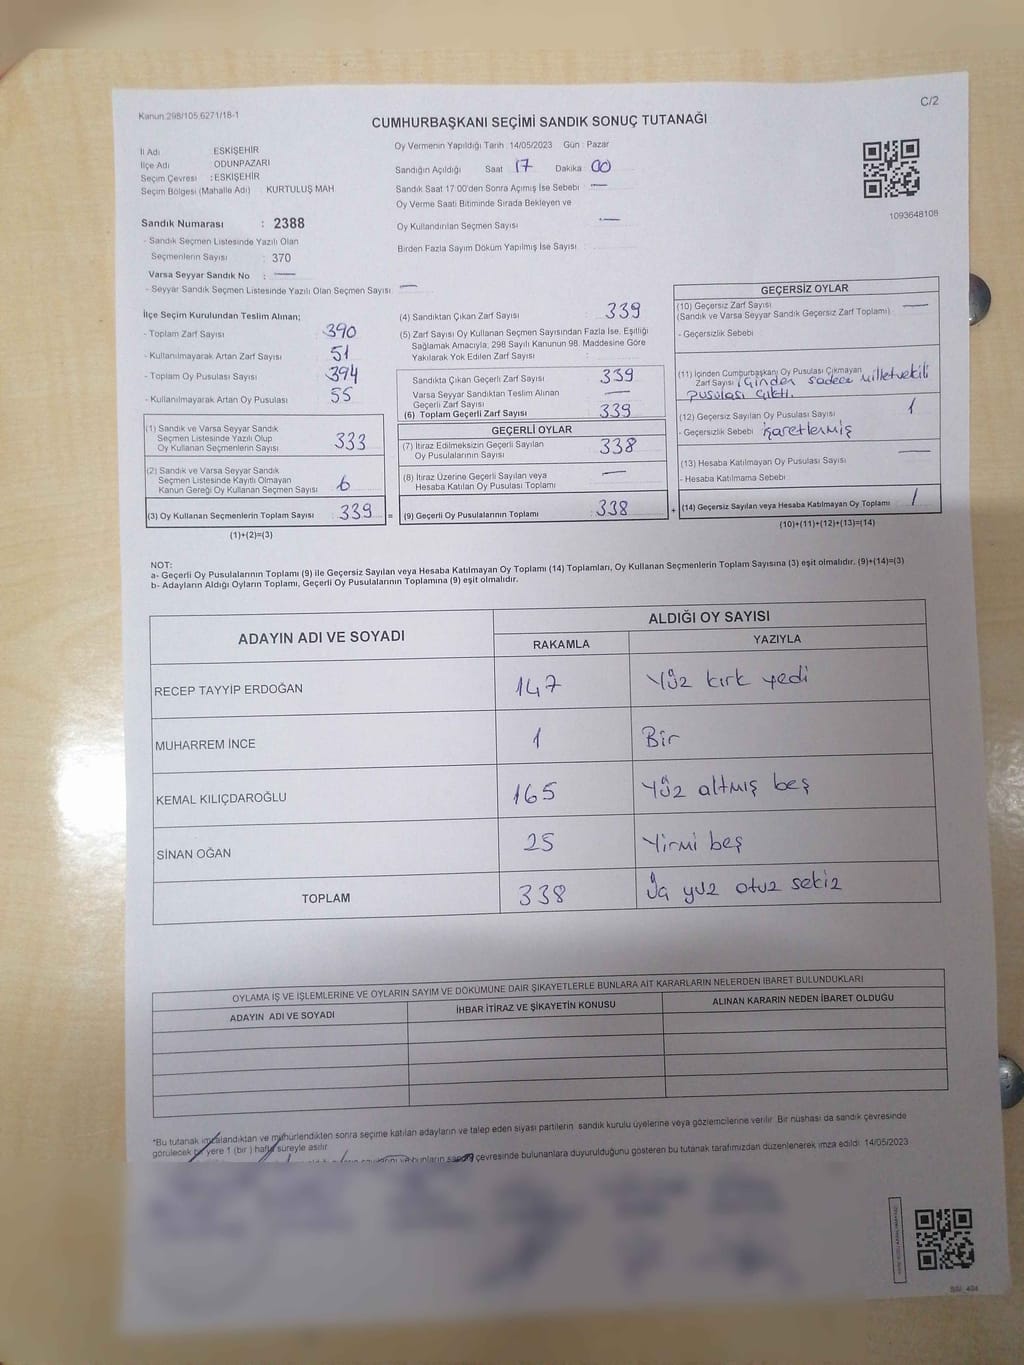 Kanun.298/105,6271/18-1
C/2
CUMHURBAŞKANI SEÇİMİ SANDIK SONUÇ TUTANAĞI
İl Adı ESKİŞEHİR
İlçe Adı ODUNPAZARI
Seçim Çevresi : ESKİŞEHİR
Seçim Bölgesi (Mahalle Adı) KURTULUŞ MAH
Sandık Numarası : 2388
- Sandık Seçmen Listesinde Yazılı Olan
Seçmenlerin Sayısı : 370
Varsa Seyyar Sandık No : —
- Seyyar Sandık Seçmen Listesinde Yazılı Olan Seçmen Sayısı : —
Oy Vermenin Yapıldığı Tarih : 14/05/2023 Gün : Pazar
Sandığın Açıldığı Saat 17 Dakika 00
Sandık Saat 17:00'den Sonra Açımış İse Sebebi —
Oy Verme Saati Bitiminde Sırada Bekleyen ve
Oy Kullandırılan Seçmen Sayısı : —
Birden Fazla Sayım Döküm Yapılmış İse Sayısı :
1093648108
İlçe Seçim Kurulundan Teslim Alınan;
- Toplam Zarf Sayısı : 390
- Kullanılmayarak Artan Zarf Sayısı : 51
- Toplam Oy Pusulası Sayısı : 394
- Kullanılmayarak Artan Oy Pusulası : 55
(1) Sandık ve Varsa Seyyar Sandık
Seçmen Listesinde Yazılı Olup
Oy Kullanan Seçmenlerin Sayısı : 333
(2) Sandık ve Varsa Seyyar Sandık
Seçmen Listesinde Kayıtlı Olmayan
Kanun Gereği Oy Kullanan Seçmen Sayısı : 6
(3) Oy Kullanan Seçmenlerin Toplam Sayısı : 339 =
(1)+(2)=(3)
(4) Sandıktan Çıkan Zarf Sayısı : 339
(5) Zarf Sayısı Oy Kullanan Seçmen Sayısından Fazla İse, Eşitliği
Sağlamak Amacıyla, 298 Sayılı Kanunun 98. Maddesine Göre
Yakılarak Yok Edilen Zarf Sayısı :
Sandıkta Çıkan Geçerli Zarf Sayısı : 339
Varsa Seyyar Sandıktan Teslim Alınan
Geçerli Zarf Sayısı : —
(6) Toplam Geçerli Zarf Sayısı : 339
GEÇERLİ OYLAR
(7) İtiraz Edilmeksizin Geçerli Sayılan
Oy Pusulalarının Sayısı : 338
(8) İtiraz Üzerine Geçerli Sayılan veya
Hesaba Katılan Oy Pusulası Toplamı : —
(9) Geçerli Oy Pusulalarının Toplamı : 338 +
GEÇERSİZ OYLAR
(10) Geçersiz Zarf Sayısı —
(Sandık ve Varsa Seyyar Sandık Geçersiz Zarf Toplamı)
- Geçersizlik Sebebi :
(11) İçinden Cumhurbaşkanı Oy Pusulası Çıkmayan
Zarf Sayısı : içinden sadece milletvekili
pusulası çıktı.
(12) Geçersiz Sayılan Oy Pusulası Sayısı : 1
- Geçersizlik Sebebi : işaretlenmiş
(13) Hesaba Katılmayan Oy Pusulası Sayısı : —
- Hesaba Katılmama Sebebi :
(14) Geçersiz Sayılan veya Hesaba Katılmayan Oy Toplamı : 1
(10)+(11)+(12)+(13)=(14)
NOT:
a- Geçerli Oy Pusulalarının Toplamı (9) ile Geçersiz Sayılan veya Hesaba Katılmayan Oy Toplamı (14) Toplamları, Oy Kullanan Seçmenlerin Toplam Sayısına (3) eşit olmalıdır. (9)+(14)=(3)
b- Adayların Aldığı Oyların Toplamı, Geçerli Oy Pusulalarının Toplamına (9) eşit olmalıdır.
ADAYIN ADI VE SOYADI ALDIĞI OY SAYISI
RAKAMLA YAZIYLA
RECEP TAYYİP ERDOĞAN 147 Yüz kırk yedi
MUHARREM İNCE 1 Bir
KEMAL KILIÇDAROĞLU 165 Yüz altmış beş
SİNAN OĞAN 25 Yirmi beş
TOPLAM 338 Üç yüz otuz sekiz
OYLAMA İŞ VE İŞLEMLERİNE VE OYLARIN SAYIM VE DÖKÜMÜNE DAİR ŞİKAYETLERLE BUNLARA AİT KARARLARIN NELERDEN İBARET BULUNDUKLARI
ADAYIN ADI VE SOYADI İHBAR İTİRAZ VE ŞİKAYETİN KONUSU ALINAN KARARIN NEDEN İBARET OLDUĞU
*Bu tutanak imzalandıktan ve mühürlendikten sonra seçime katılan adayların ve talep eden siyasi partilerin sandık kurulu üyelerine veya gözlemcilerine verilir. Bir nüshası da sandık çevresinde
görülecek bir yere 1 (bir) hafta süreyle asılır.
bunların sandık çevresinde bulunanlara duyurulduğunu gösteren bu tutanak tarafımızdan düzenlenerek imza edildi. 14/05/2023